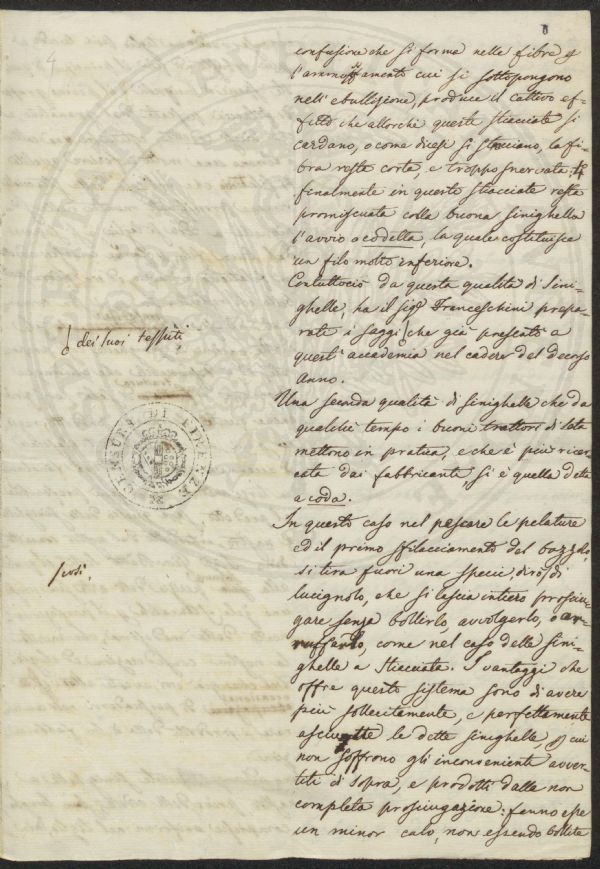 confusione che si forma nelle fibre p
l'ammoffamento cui si sottopongono
nell'ebullizione, produce il cattivo ef-
fetto che allorchè queste stiacciate si
cardano, o come dicesi si stracciano, la fi-
bra resta corta, e troppo snervata:
finalmente in queste stiacciate resta
promiscuata colla buona sinighella
l'avvio o codetta, la quale costituisce
un filo molto inferiore.
Contuttociò da questa qualità di sini-
ghelle, ha il sig. Franceschini prepa-
rati i saggi che già presentò a
quest'accademia nel cadere del decorso
Anno.
dei suoi tessuti,
Una seconda qualità di sinighelle che da
qualche tempo i buoni trattori di seta
mettono in pratica, e che è più ricer-
cata dai fabbricanti si è quella detta
a coda.
CENSURA DI FIRENZE
In questo caso nel pescare le pelature
ed il primo sfilacciamento del bozzolo,
si tira fuori una specie, dirò di
così,
lucignolo, che si lascia intiero prosciu-
gare senza bollirlo, avvolgerlo, o ar-
ruffarlo, come nel caso delle sini-
ghelle a stiacciata. I vantaggi che
offre questo sistema sono di avere
più sollecitamente, e perfettamente
asciutte le dette sinighelle, p cui
non soffrono gli inconvenienti avver-
titi di sopra, e prodotti dalla non
completa prosciugazione: fanno esse
un minor calo, non essendo bollite